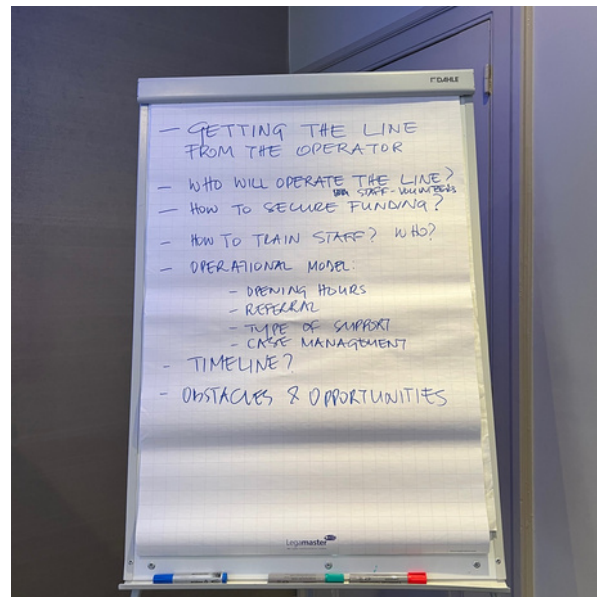 DAHLE
— GETTING THE LINE
FROM THE OPERATOR
— WHO WILL OPERATE THE LINE?
STAFF - VOLUNTEERS
— HOW TO SECURE FUNDING?
— HOW TO TRAIN STAFF? WHO?
— OPERATIONAL MODEL:
— OPENING HOURS
— REFERRAL
— TYPE OF SUPPORT
— CASE MANAGEMENT
— TIMELINE?
— OBSTACLES & OPPORTUNITIES
Legamaster